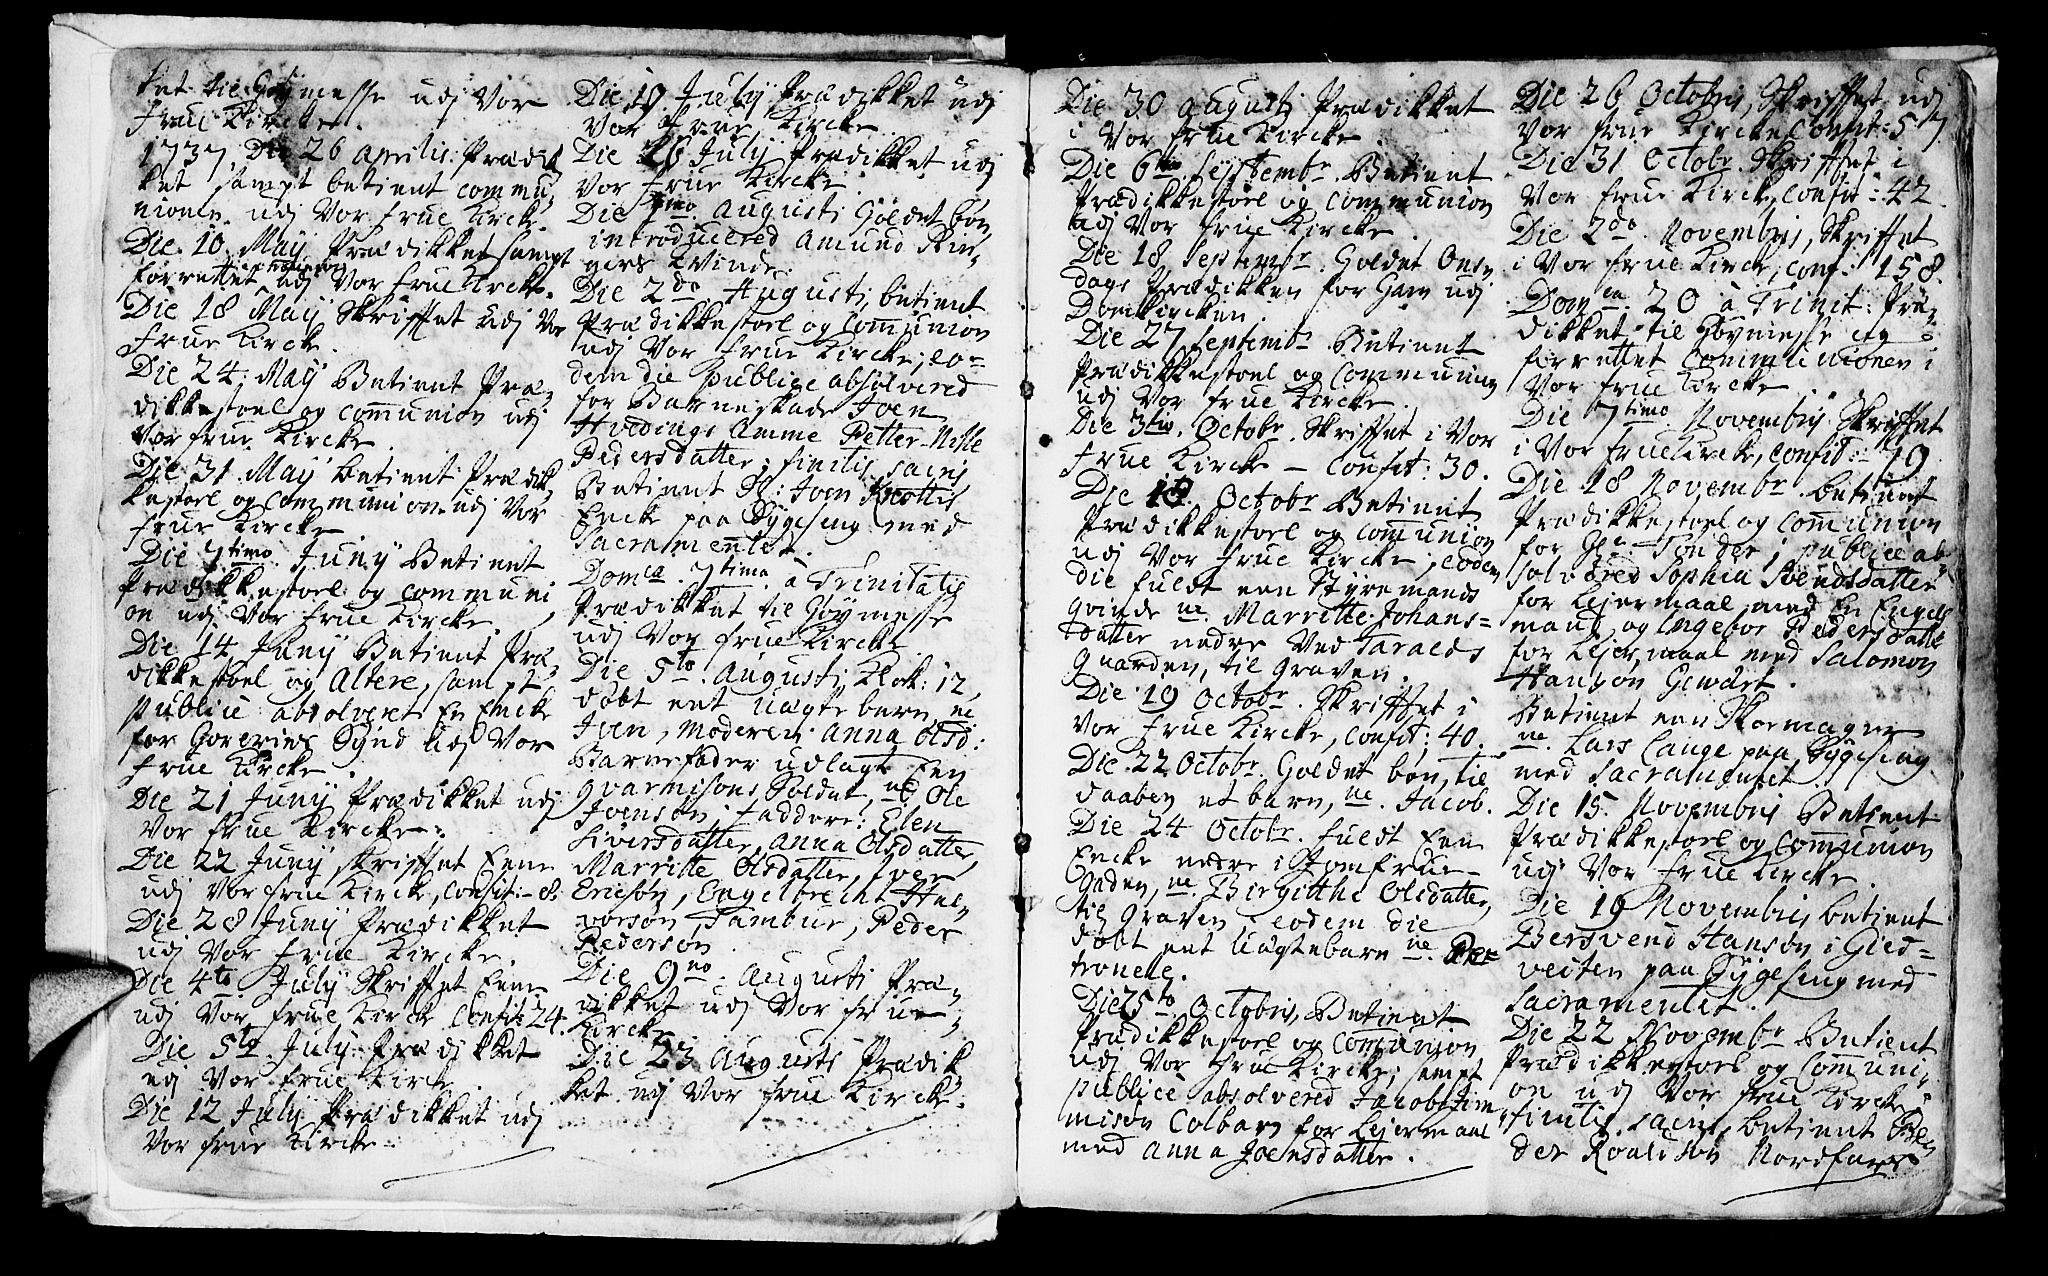 ket til Høymesse udj Vor
Frue Kircke.
1737, Die 26 Aprilis Prædik
ket sampt betient Commu-
nionen udj Vor Frue Kircke.
Die 10 Maÿ Prædikket sampt
forrettet udj Vor Frue Kircke.
Die 18 Maÿ Skrifftet udj Vor
Frue Kircke.
Die 24 Maÿ Betient Præ-
dikkestoel og Communion udj
Vor Frue Kircke.
Die 31 Maÿ betient Prædik
kestoel og Communion udj Vor
Frue Kircke
Die 7timo Junÿ Betient
Prædikkestoel og Communi
on udj Vor Frue Kircke.
Die 14 Junÿ Betient Præ-
dikkestoel og Altere, sampt
publice absolveret En Encke
for Horeries Synd udj Vor
Frue Kircke.
Die 21 Junÿ Prædikket udj
Vor Frue Kircke.
Die 22 Junÿ skrifftet Eene
udj Vor Frue Kirck, Confit: 8.
Die 28 Junÿ Prædikket
udj Vor Frue Kircke.
Die 4to Julÿ Skrifftet Eene
udj Vor Frue Kirck Confit: 24.
Die 5to Julÿ Prædikket
udj Vor Frue Kirck
Die 12 Julÿ Prædikket udj
Vor Frue Kircke
Die 19 Julÿ Prædikket udj
Vor Frue Kircke
Die 26 Julÿ Prædikket udj
Vor Frue Kircke.
Die 1mo Augusti Holdet bøn,
introducered Amund
Kvinde.
Die 2do Augusti betient
Prædikkestoel og Communion
udj Vor Frue Kircke; eo-
dem die publice absolvered
for Barneskade Joen
Hvedings Amme Petter-Nille
Pedersdatter; finitis sacris
Betient H: Joen
Encke paa Sygeseng med
Sacramentet.
Domca 7tima à Trinitatis
Prædikket til Høymesse
udj Vor Frue Kircke
Die 5to Augusti Klok: 12,
døbt eet uægte barn, ne
Joen, Moderen Anna Olsd:
Barnefader udlagt Een
Gvarnisons Soldat, ne Ole
Joensøn; Faddere: Elen
Siversdatter, Anna Olsdatter,
Marritte Olsdatter, Iver
Ericsøn, Engelbrecht Hal-
vorsøn, Tambur, Peder
Pedersøn
Die 9no Augusti Præ-
dikket udj Vor Frue
Kircke
Die 23 Augusti Prædik
ket udj Vor Frue Kircke.
Die 30 Augusti Prædikket
i Vor Frue Kircke.
Die 6to Septembr. Betient
Prædikkestoel og Communion
udj Vor Frue Kircke.
Die 18 Septembr. Holdet Ons-
dags Prædikken for Ham udj
Domkircken.
Die 27 Septembr. Betient
Prædikkestoel og Communion
udj Vor Frue Kircke.
Die 3tio Octobr. Skrifftet i Vor
Frue Kircke – Confit: 30.
Die 10 Octobr Betient
Prædikkestoel og Communion
udj Vor Frue Kircke; eodem
die fuldt een Styremands
Qvinde ne Marritte Johans-
datter nedre Ved Taralds
Gaarden, til Graven.
Die 19 Octobr. Skrifftet i
Vor Frue Kircke, Confit: 40.
Die 22 Octobr. Holdet bøn, til
daaben et barn, ne Jacob.
Die 24 Octobr. fuldt Een
Encke nedre i Jomfrue
Gaden, ne Birgitthe Olsdatter,
til Graven eodem die
døbt eet Uægtebarn ne Pe-
tronelle.
Die 25to Octobris, Betient
Prædikkestoel og Communion
udj Vor Frue Kircke; sampt
publice absolvered Jacob Jim
misøn Colbarn for Lejermaal
med Anna Joensdatter.
Die 26 Octobris, Skrifftet udj
Vor Frue Kircke Confit: 57
Die 31 Octobr Skrifftet i
Vor Frue Kirck, Confit: 42.
Die 2do Novembris, Skrifftet
i Vor Frue Kirck, Conf: 158.
Domca 20 à Trinit: Præ-
dikket til Høymesse og
forrettet Communionen i
Vor Frue Kircke
Die 7timo Novembris Skrifftet
i Vor Frue Kirck, Confit: 19.
Die 18 Novembr. betient
Prædikkestoel og Communion
for Hr: Tonder; publice ab-
solvered Sophia Svendsdatter
for Lejermaal med En Engels
mand, og Ingebor Pedersdatter
for Lejermaal med Salomon
Hansøn Gewært.
Betient een Skomager
ne. Lars Lange paa Sygeseng
med Sacramentet
Die 15 Novembris Betient
Prædikkestoel og Communion
udj Vor Frue Kircke.
Die 19 Novembris betient
Bersvend Hansøn i Gied-
veiten paa Sygeseng med
Sacramentet.
Die 22 Novembr Betient
Prædikkestoel og Communi-
on udj Vor Frue Kircke
finitis sacris, betient Pe-
der Roaldsøn Nordfarer